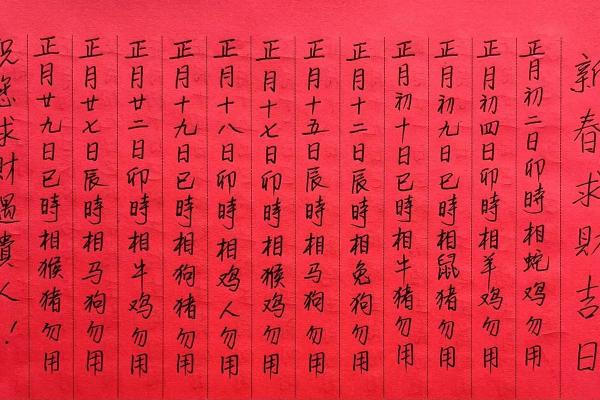 新春求財吉日
正月初二日卯時相蛇鸡勿用
正月初四日卯時相羊鸡勿用
正月初九日巳時相鼠猪勿用
正月初十日巳時相牛猪勿用
正月十二日辰時相兔狗勿用
正月十五日辰時相马狗勿用
正月十七日卯時相猴鸡勿用
正月十八日卯時相鸡人勿用
正月十九日巳時相狗猪勿用
正月廿二日卯時相牛鸡勿用
正月廿七日辰時相马狗勿用
正月廿九日巳時相猴猪勿用
祝您求財遇貴人！